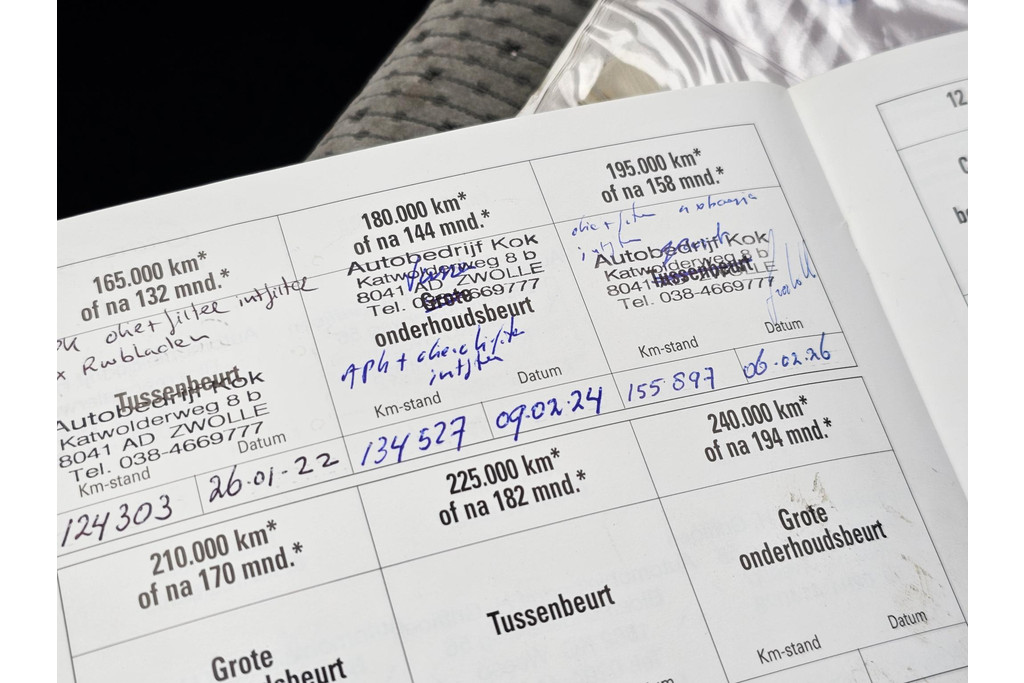 165.000 km*
of na 132 mnd.*
olie + filter int filter
x Rwbladen
Tussenbeurt
Autobedrijf Kok
Katwolderweg 8 b
8041 AD ZWOLLE
Tel. 038-4669777
Km-stand
Datum
124303
26-01-22
180.000 km*
of na 144 mnd.*
Autobedrijf Kok
Katwolderweg 8 b
8041 AD ZWOLLE
Tel. 038-4669777
Grote
onderhoudsbeurt
APK + olie
Km-stand
Datum
134527
09-02-24
195.000 km*
of na 158 mnd.*
Autobedrijf Kok
Katwolderweg 8 b
Tussenbeurt
8041 AD ZWOLLE
Tel. 038-4669777
Km-stand
Datum
155897
06-02-26
210.000 km*
of na 170 mnd.*
Grote
225.000 km*
of na 182 mnd.*
Tussenbeurt
240.000 km*
of na 194 mnd.*
Grote
onderhoudsbeurt
Km-stand
Datum
12